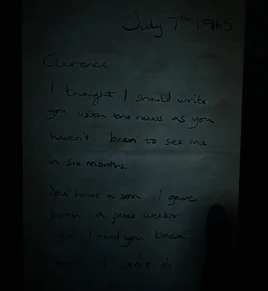 July 7th 1965
Clarence,
I thought I should write
you with the news as you
haven't been to see me
in six months.
You have a son. I gave
birth a few weeks
I need you back
I can't